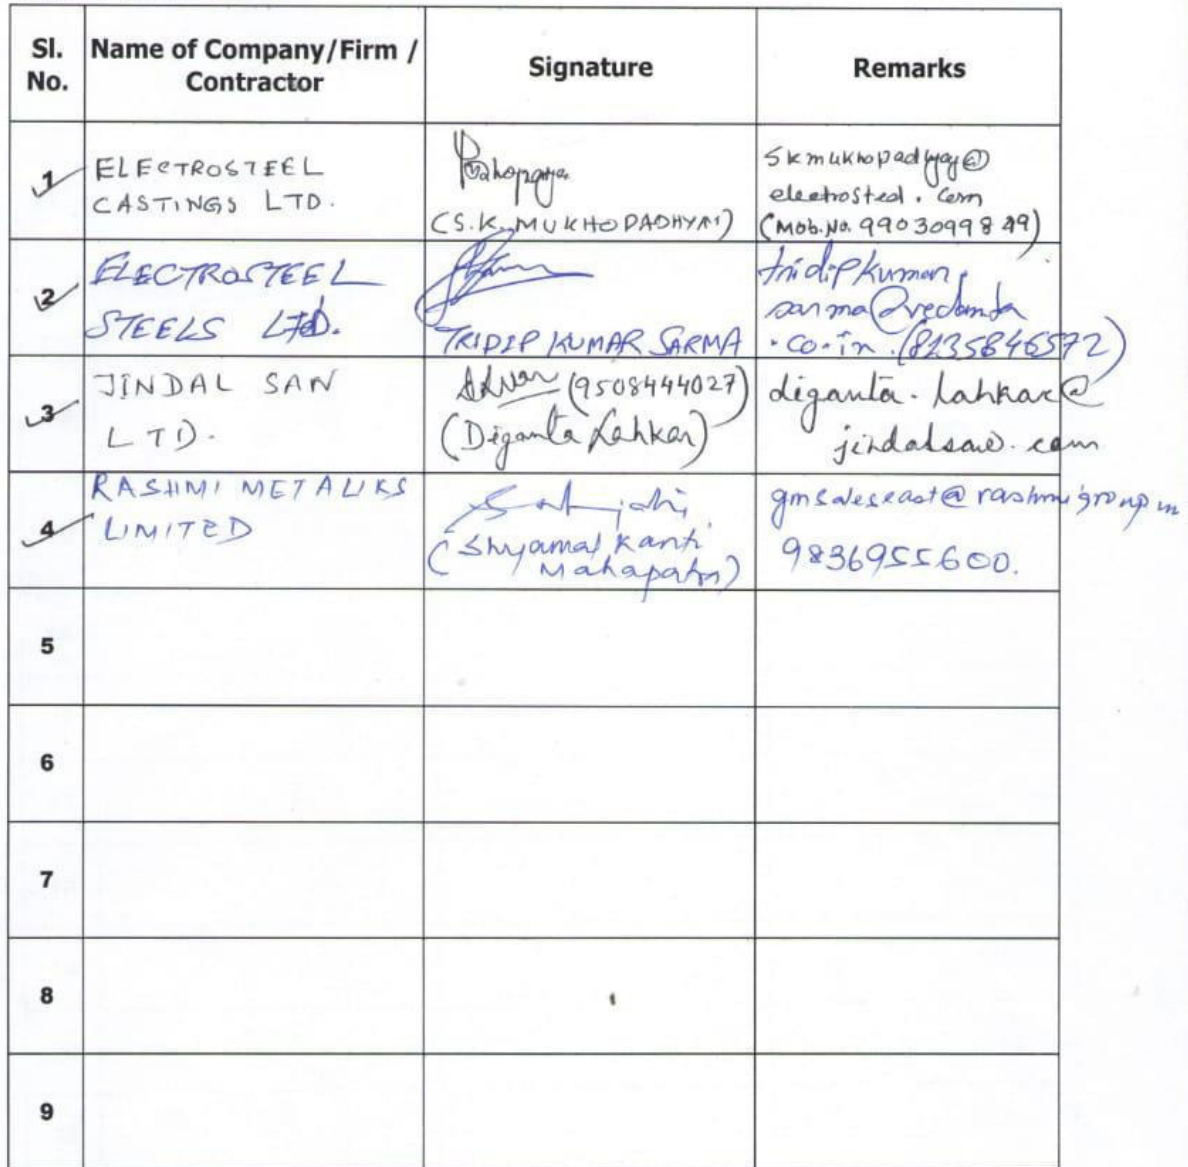 Sl. No. Name of Company/Firm / Contractor Signature Remarks
1 ELECTROSTEEL
CASTINGS LTD.
(S.K. MUKHOPADHYAY)
skmukhopadhyay@
electrosteel.com
(Mob.No. 9903099849)
2 ELECTROSTEEL
STEELS Ltd.
TRIDIP KUMAR SARMA
tridipkumar.
sarma@vedanta
.co.in (8135846572)
3 JINDAL SAW
LTD.
(9508444027)
(Diganta Lahkar)
diganta.lahkar@
jindalsaw.com
4 RASHMI METALIKS
LIMITED
(Shyamal Kanti
Mahapatra)
gmsaleseast@rashmigroup.in
9836955600.
5
6
7
8
9